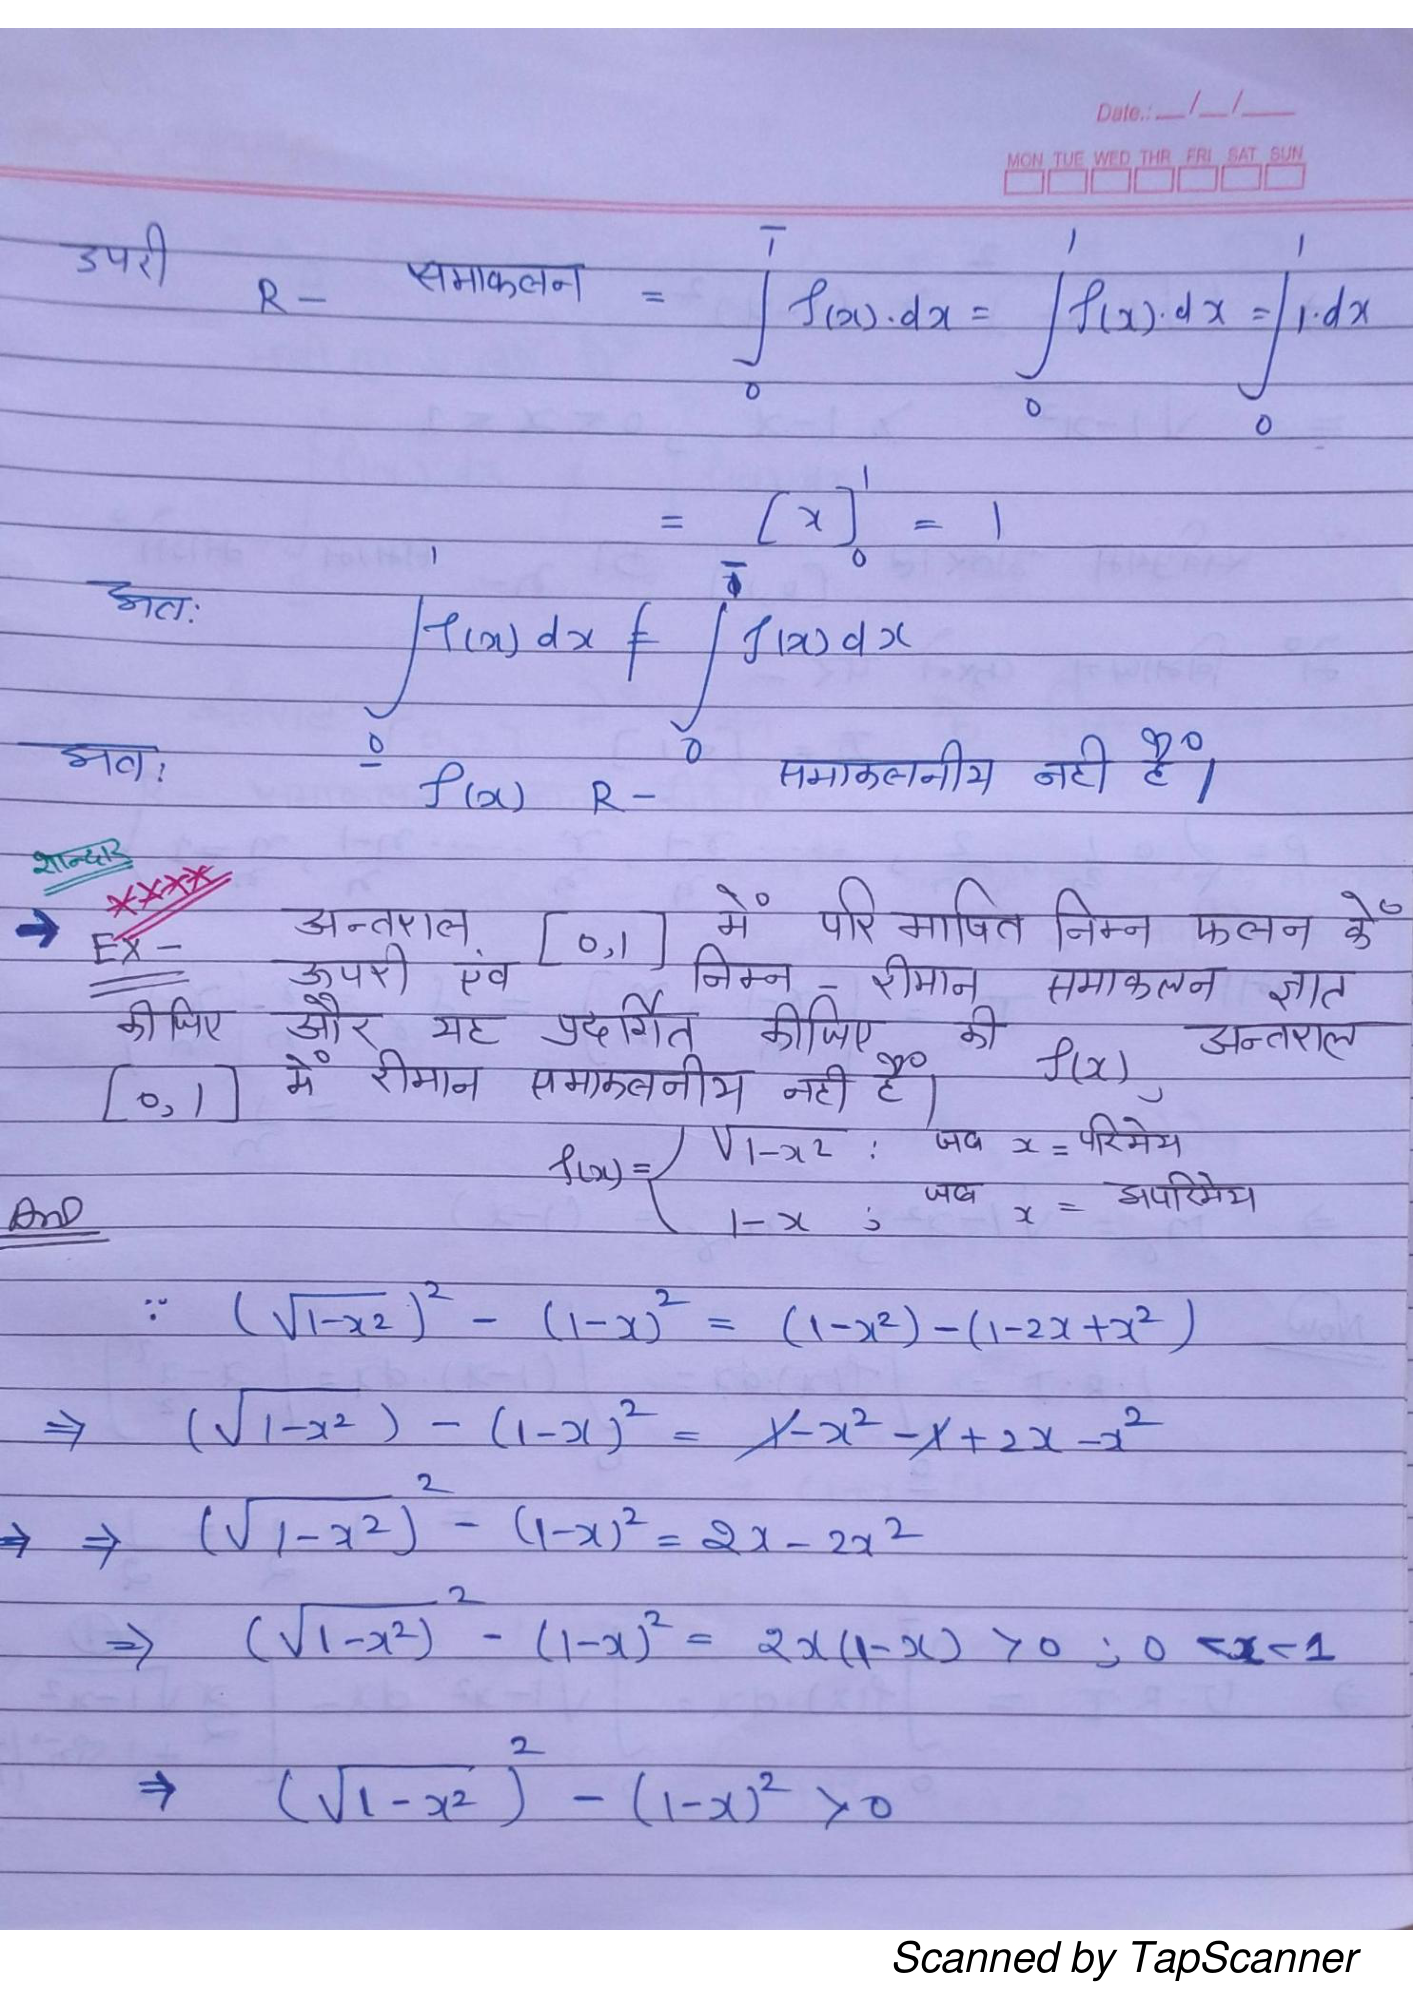 Date.: __/__/__
MON TUE WED THR FRI SAT SUN
उपरी R- समाकलन = ∫₀^1̅ f(x).dx = ∫₀¹ f(x).dx = ∫₀¹ 1.dx
= [x]₀¹ = 1
अतः ∫_0̲^1 f(x) dx ≠ ∫₀^1̅ f(x) dx
अतः f(x) R- समाकलनीय नही है।
शान्दार
××××
→ Ex- अन्तराल [0,1] में परिभाषित निम्न फलन के
ऊपरी एंव निम्न - रीमान समाकलन ज्ञात
कीजिए और यह प्रदर्शित कीजिए की f(x), अन्तराल
[0,1] में रीमान समाकलनीय नही है।
f(x) = { √1-x² ; जब x = परिमेय
1-x ; जब x = अपरिमेय
Ans
∵ (√1-x²)² - (1-x)² = (1-x²)-(1-2x+x²)
⇒ (√1-x²) - (1-x)² = 1-x²-1+2x-x²
⇒ ⇒ (√1-x²)² - (1-x)² = 2x-2x²
⇒ (√1-x²)² - (1-x)² = 2x(1-x) >0 ; 0 <x<1
⇒ (√1-x²)² - (1-x)² >0
Scanned by TapScanner